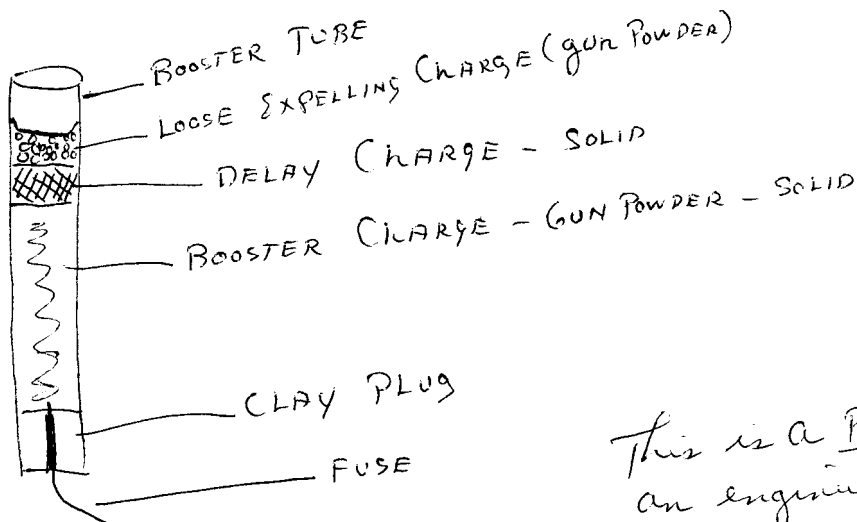 BOOSTER TUBE
LOOSE EXPELLING CHARGE (gun POWDER)
DELAY CHARGE - SOLID
BOOSTER CHARGE - GUN POWDER - SOLID
CLAY PLUG
FUSE
This is a
an